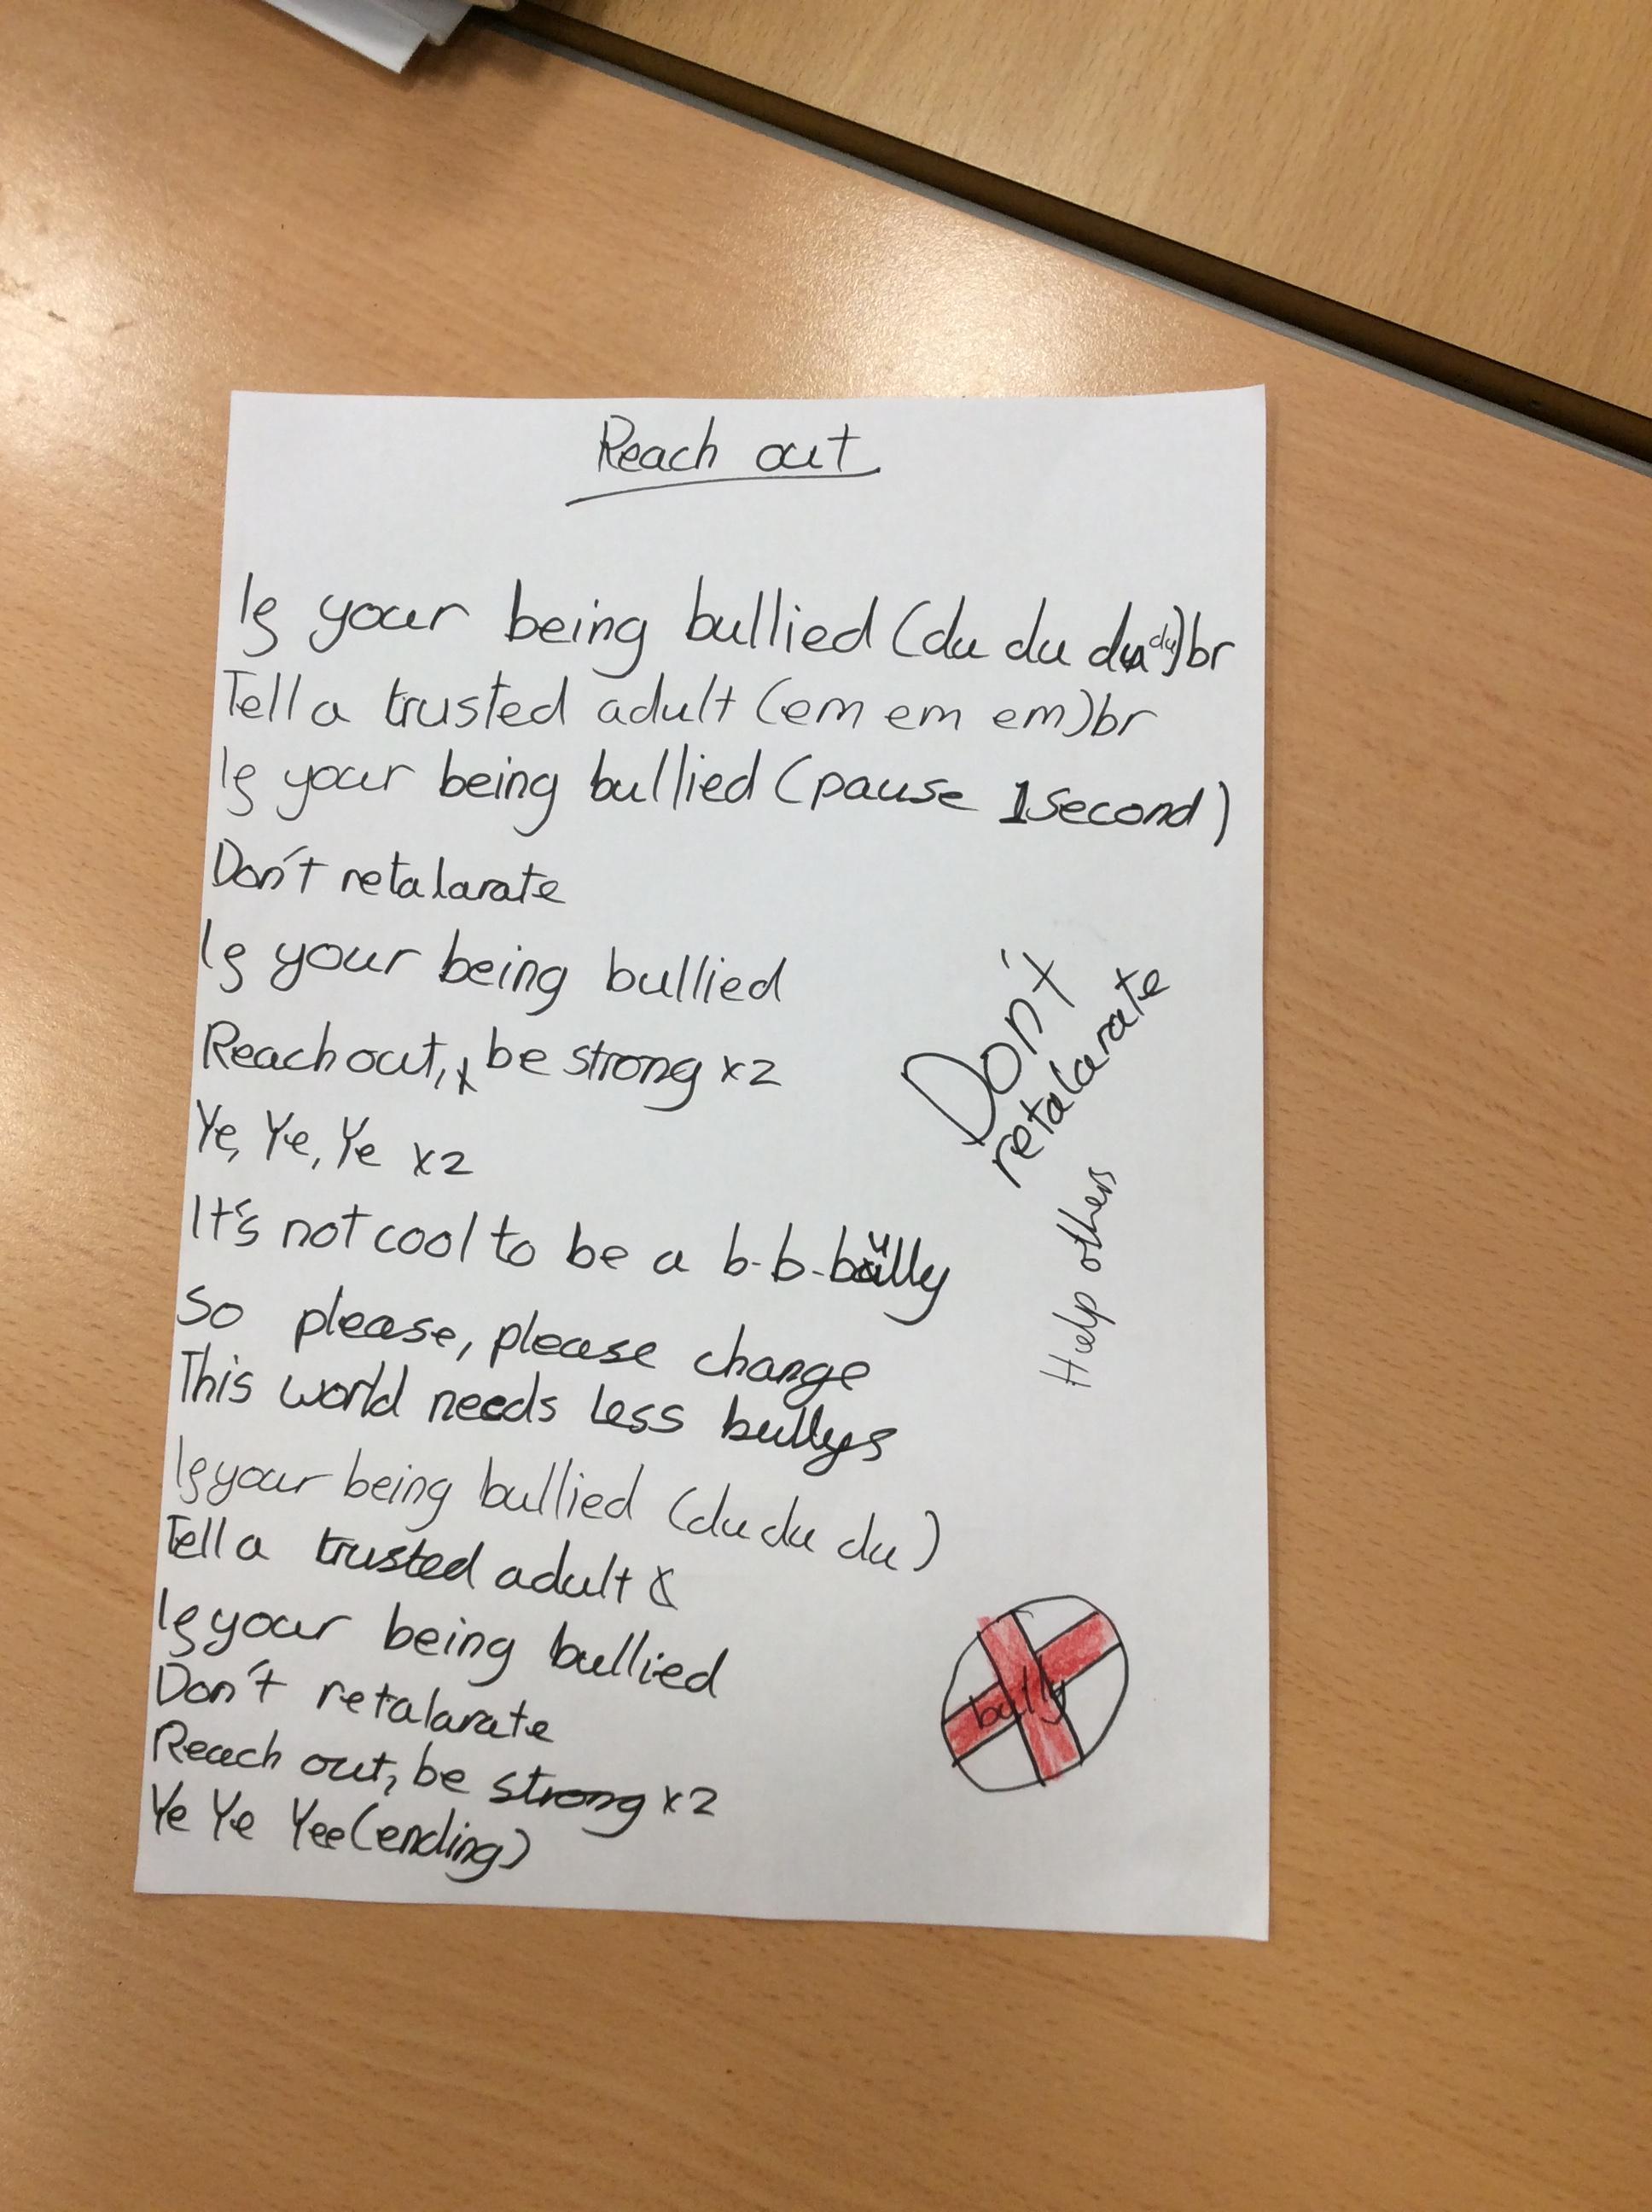 Reach out
If your being bullied (du du du du) br
Tell a trusted adult (em em em) br
If your being bullied (pause 1 second)
Don't retalarate
If your being bullied
Reach out, be strong x2
Ye, Ye, Ye x2
It's not cool to be a b-b-bully
So please, please change
This world needs less bullys
If your being bullied (du du du)
Tell a trusted adult
If your being bullied
Don't retalarate
Reach out, be strong x2
Ye Ye Yee (ending)
Don't
retalarate
Help others
bully